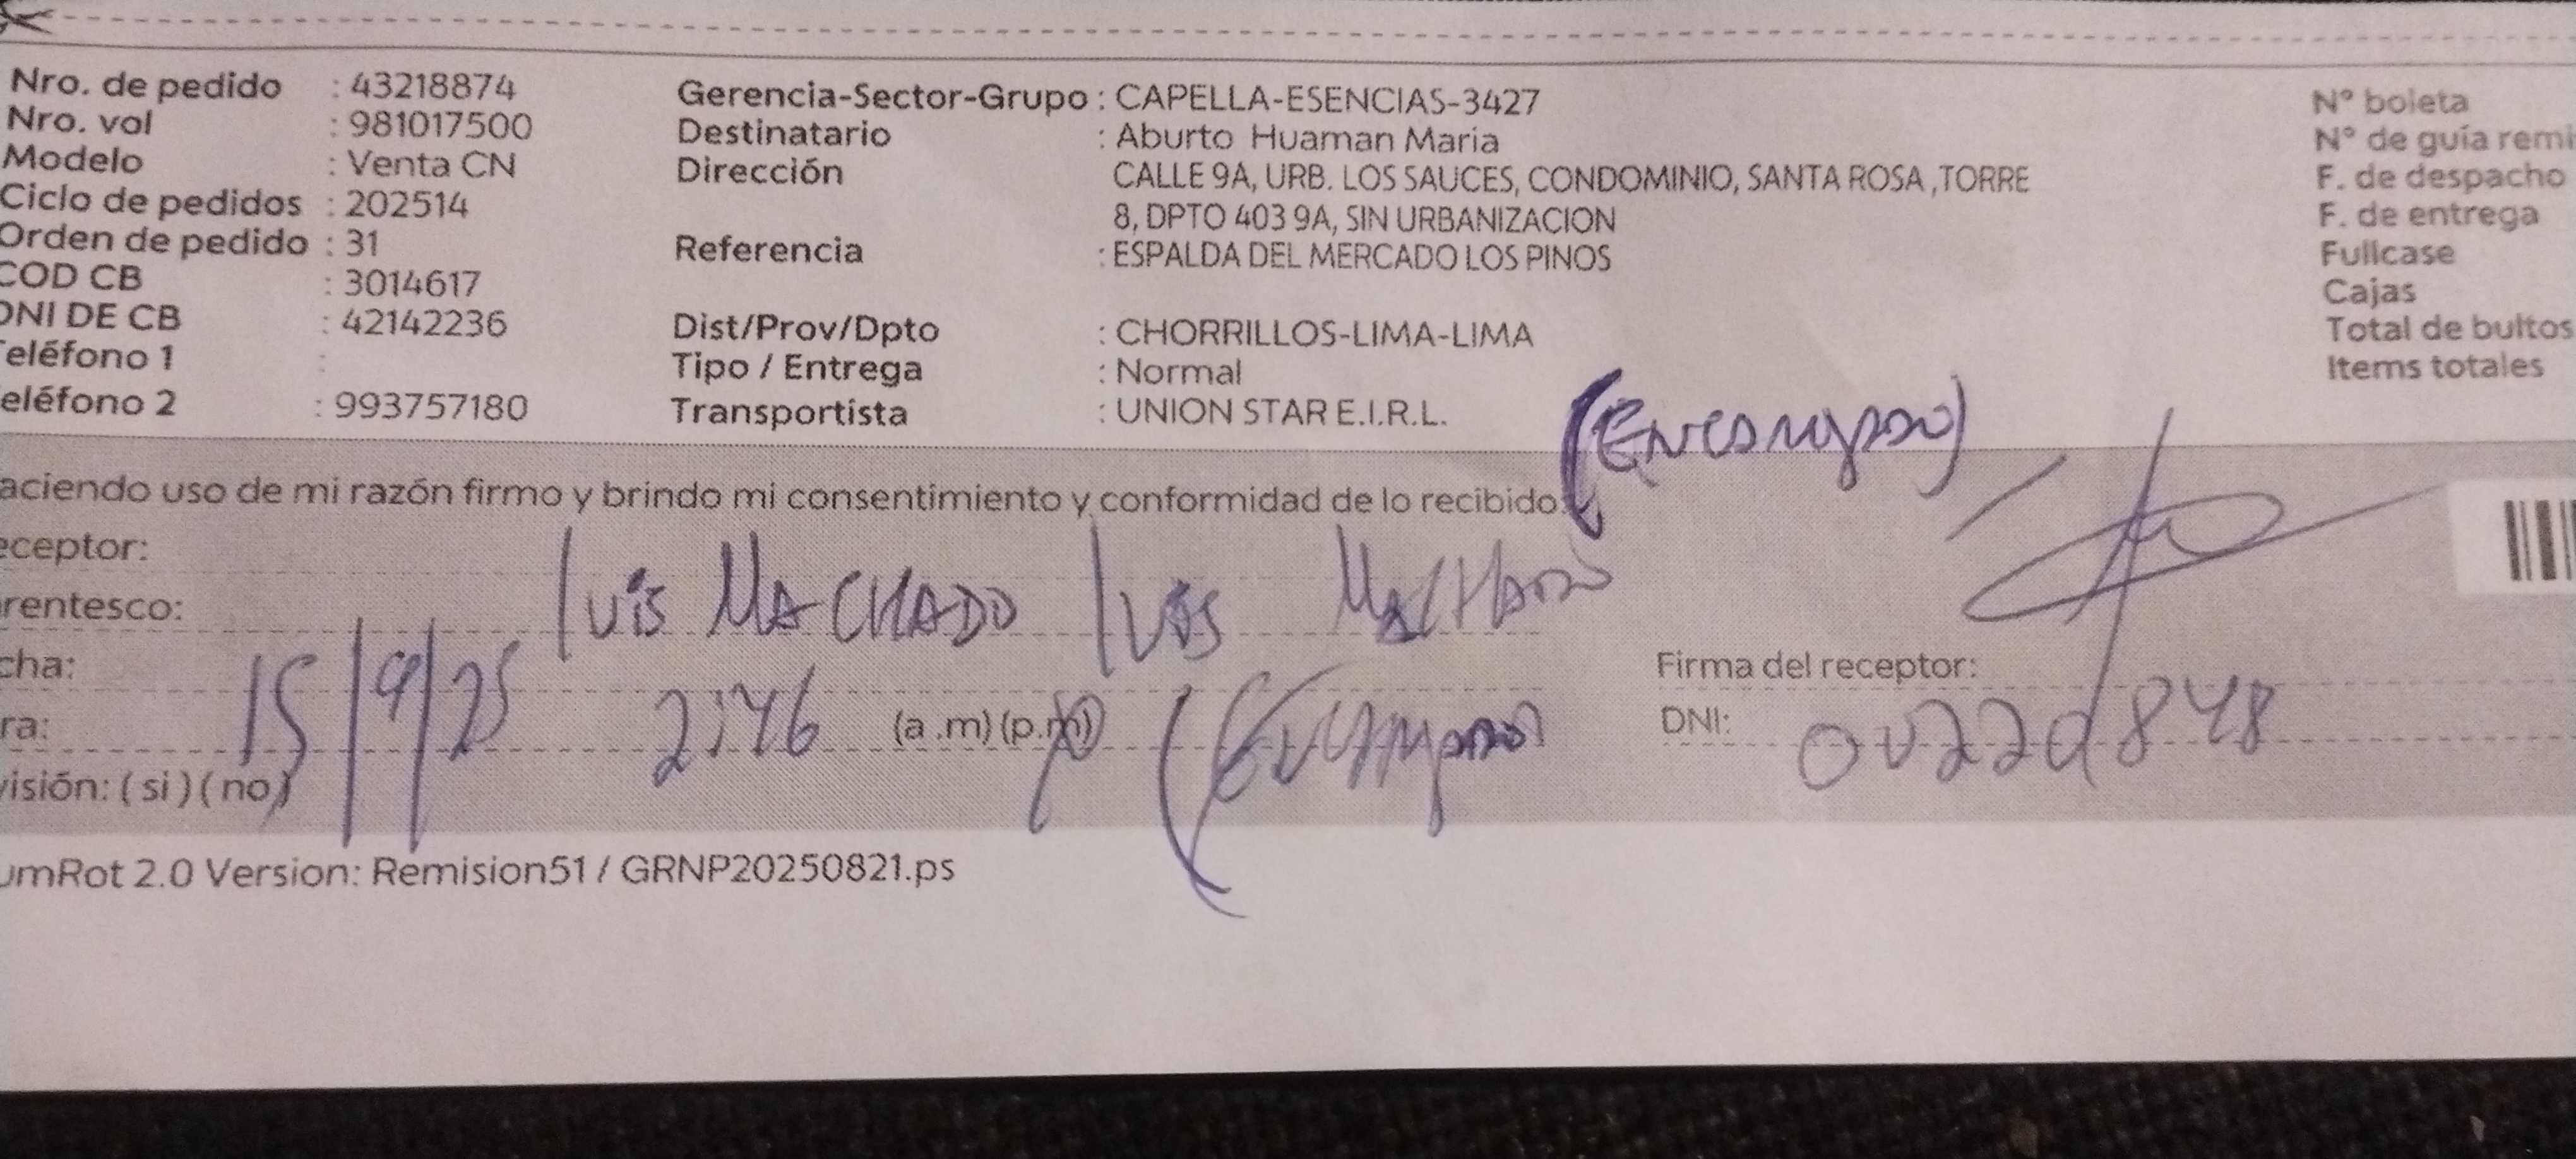 Nro. de pedido : 43218874
Nro. vol : 981017500
Modelo : Venta CN
Ciclo de pedidos : 202514
Orden de pedido : 31
COD CB : 3014617
DNI DE CB : 42142236
eléfono 1 :
eléfono 2 : 993757180
Gerencia-Sector-Grupo : CAPELLA-ESENCIAS-3427
Destinatario : Aburto Huaman Maria
Dirección CALLE 9A, URB. LOS SAUCES, CONDOMINIO, SANTA ROSA ,TORRE
8, DPTO 403 9A, SIN URBANIZACION
Referencia : ESPALDA DEL MERCADO LOS PINOS
Dist/Prov/Dpto : CHORRILLOS-LIMA-LIMA
Tipo / Entrega : Normal
Transportista : UNION STAR E.I.R.L.
N° boleta
N° de guía remi
F. de despacho
F. de entrega
Fullcase
Cajas
Total de bultos
Items totales
aciendo uso de mi razón firmo y brindo mi consentimiento y conformidad de lo recibido.
eceptor:
rentesco: luis MACHADO luis Machado
cha: 15/9/25
ra: 2:46 (a .m) (p.m)
visión: ( si ) ( no )
Firma del receptor:
DNI:
umRot 2.0 Version: Remision51 / GRNP20250821.ps